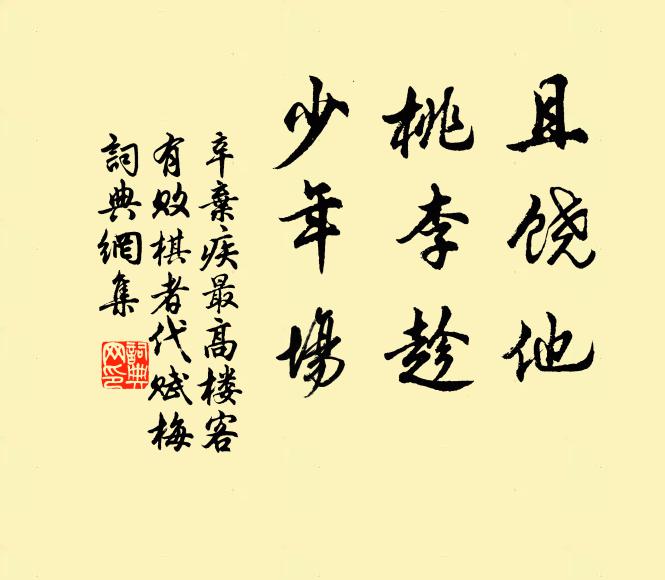 且饶他
桃李趁
少年場
辛棄疾最高楼客
有败棋者代赋梅
詞典網集
詞典
网印